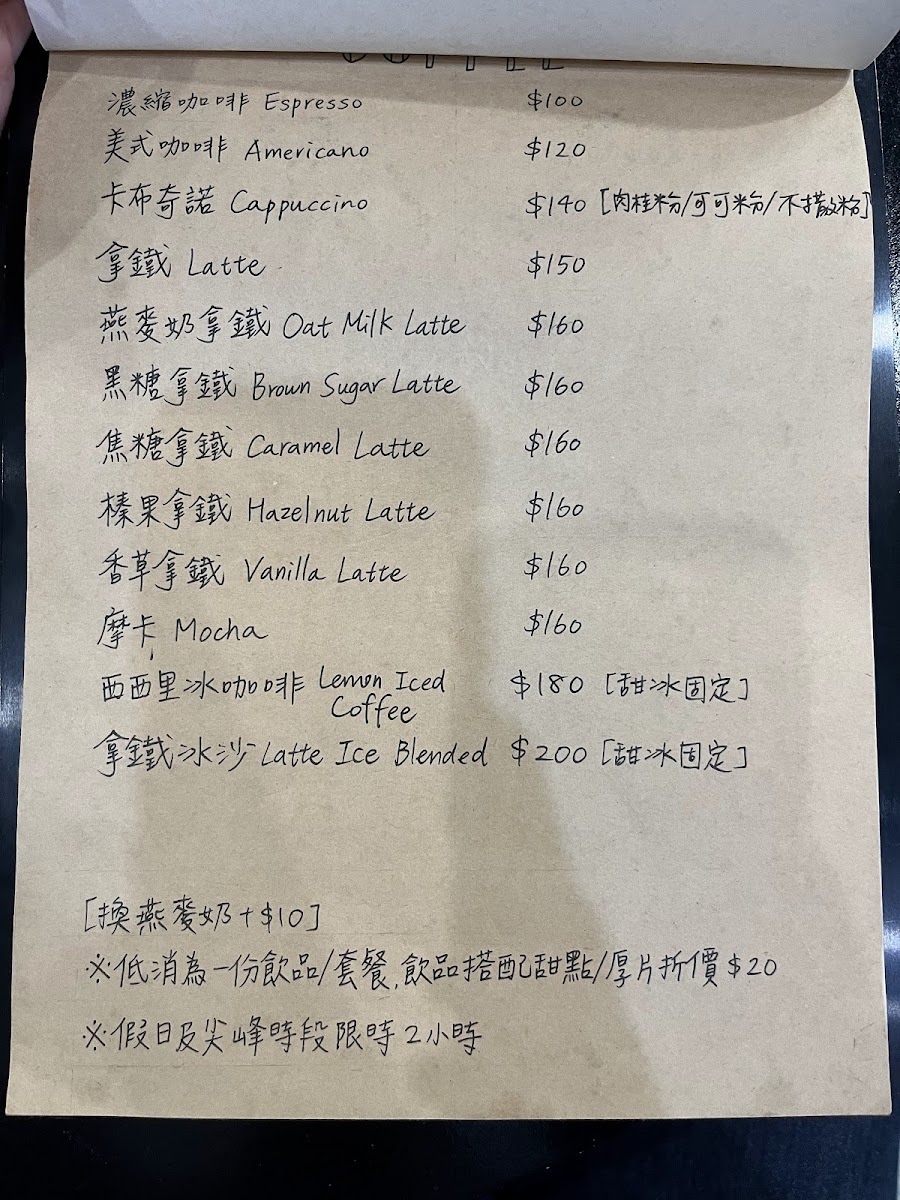 COFFEE
濃縮咖啡 Espresso $100
美式咖啡 Americano $120
卡布奇諾 Cappuccino $140 [肉桂粉/可可粉/不撒粉]
拿鐵 Latte $150
燕麥奶拿鐵 Oat Milk Latte $160
黑糖拿鐵 Brown Sugar Latte $160
焦糖拿鐵 Caramel Latte $160
榛果拿鐵 Hazelnut Latte $160
香草拿鐵 Vanilla Latte $160
摩卡 Mocha $160
西西里冰咖啡 Lemon Iced Coffee $180 [甜冰固定]
拿鐵冰沙 Latte Ice Blended $200 [甜冰固定]
[換燕麥奶+$10]
※低消為一份飲品/套餐,飲品搭配甜點/厚片折價$20
※假日及尖峰時段限時2小時